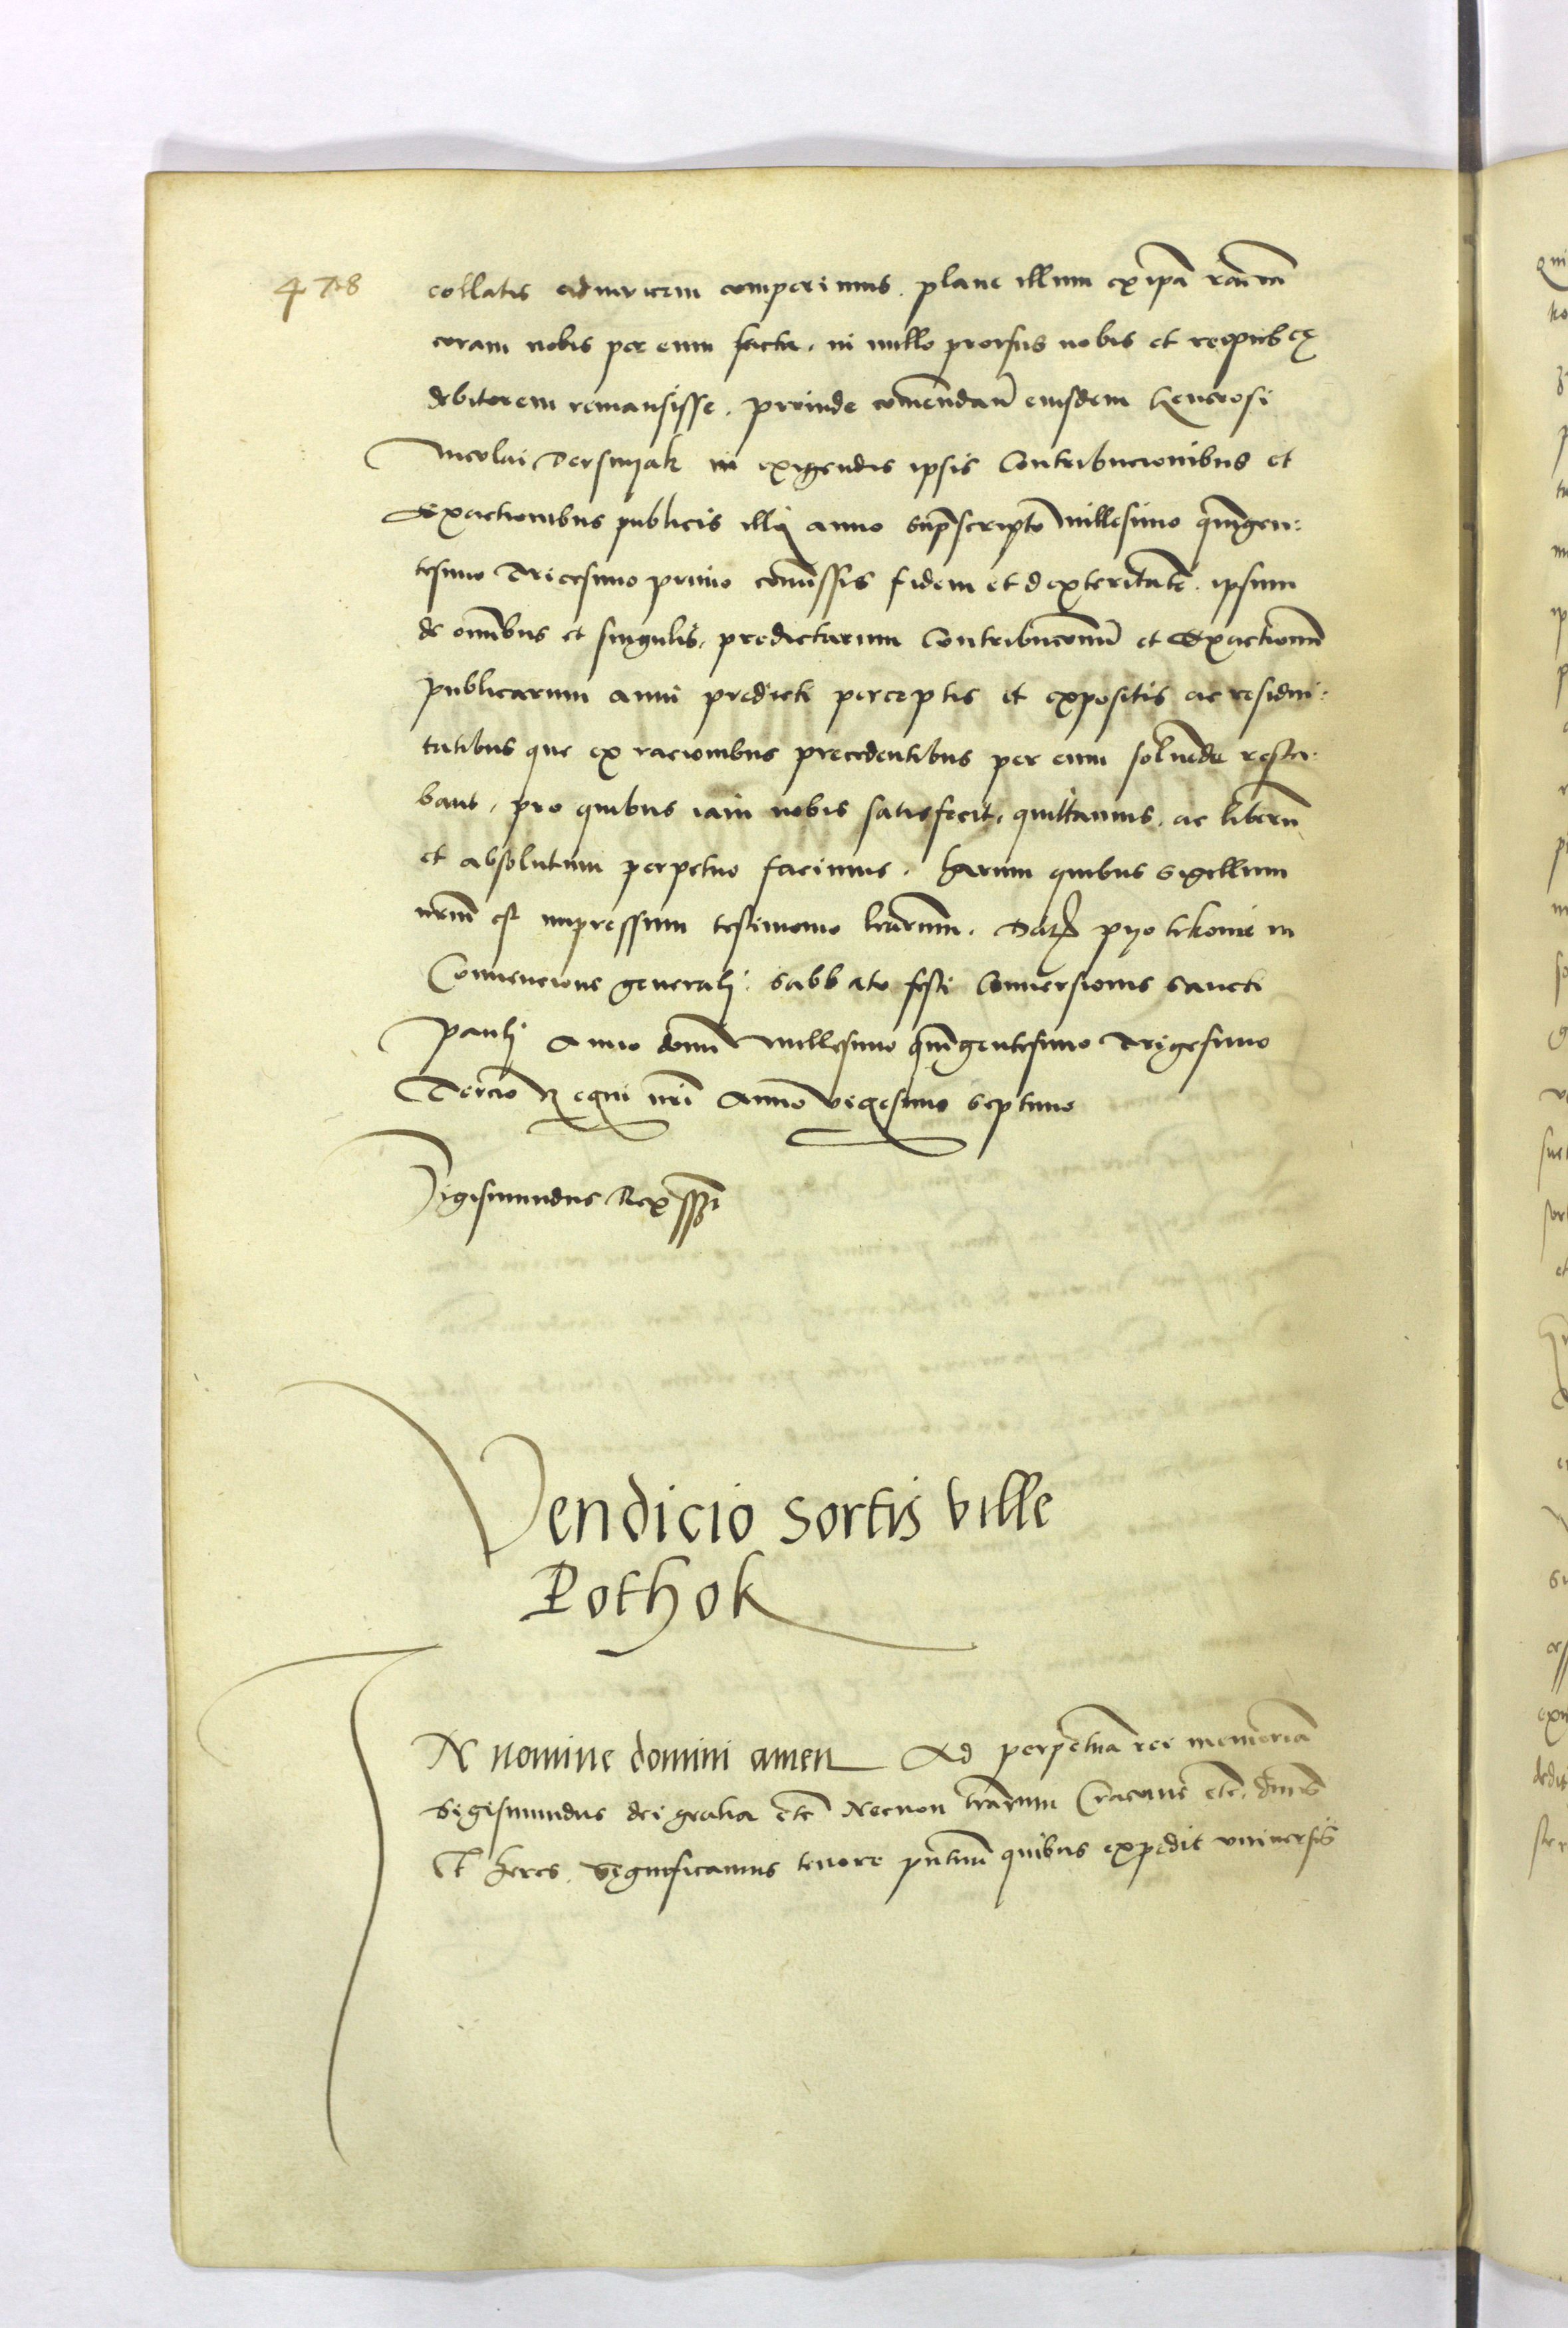 478
collatis adinvicem comperimus. plane illum ex ipa racione
coram nobis per eum facta. in nullo prorsus nobis et reipub ce
debitorem remansisse. proinde comendan eiusdem Generosi
Nicolai Dersnyak in exigendis ipsis Contribucionibus et
Exactionibus publicis illi anno suprascripto Millesimo quingen:
tesimo Tricesimo primo comissis fidem et dexteritate. ipsum
de omibus et singulis. predictarum Contribucionu et Exactionu
publicarum anni predicti perceptis et expositis ac residui:
tatibus que ex racionibus precedentibus per eum solvenda resta:
bant. pro quibus iam nobis satisfecit. quittamus. ac liberu
et absolutum perpetuo facimus. harum quibus Sigillum
nrm est impressum testimonio lrarum. Dat pyotrkovie in
Convencione generali: Sabbato festi Conversionis Sancti
Pauli Anno domi Millesimo quingentesimo Trigesimo
Tercio Regni nri Anno vigesimo septimo
Sigismundus Rex sst
Vendicio sortis ville
Pothok
IN nomine domini amen Ad perpetua rei memoria
Sigismundus dei gratia etc Necnon trarum Cracovie etc. dms
Et heres. Significamus tenore pntium quibus expedit universis